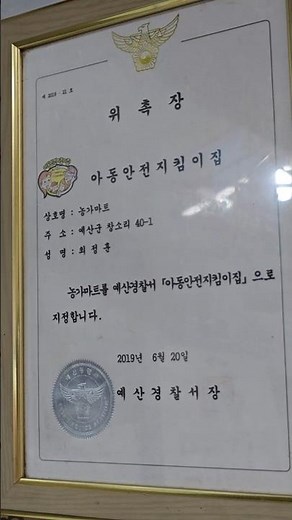 제 2019 - 22 호
위 촉 장
아동안전지킴이집
상호명 : 농가마트
주 소 : 예산군 창소리 40-1
성 명 : 최정훈
농가마트를 예산경찰서 「아동안전지킴이집」으로
지정합니다.
2019년 6월 20일
예산경찰서장